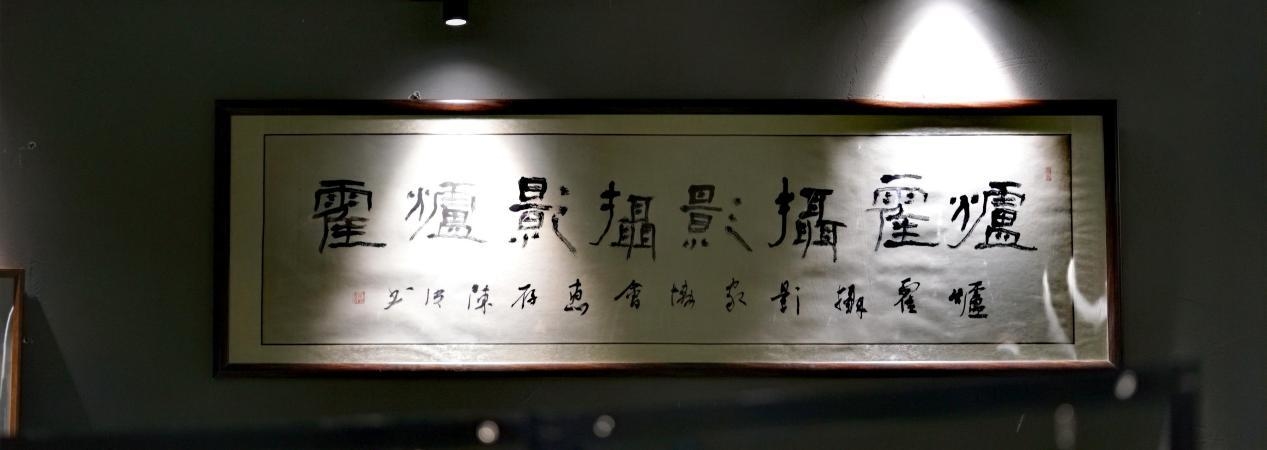 爐霍攝影攝影爐霍
爐霍攝影家協會惠存陳书